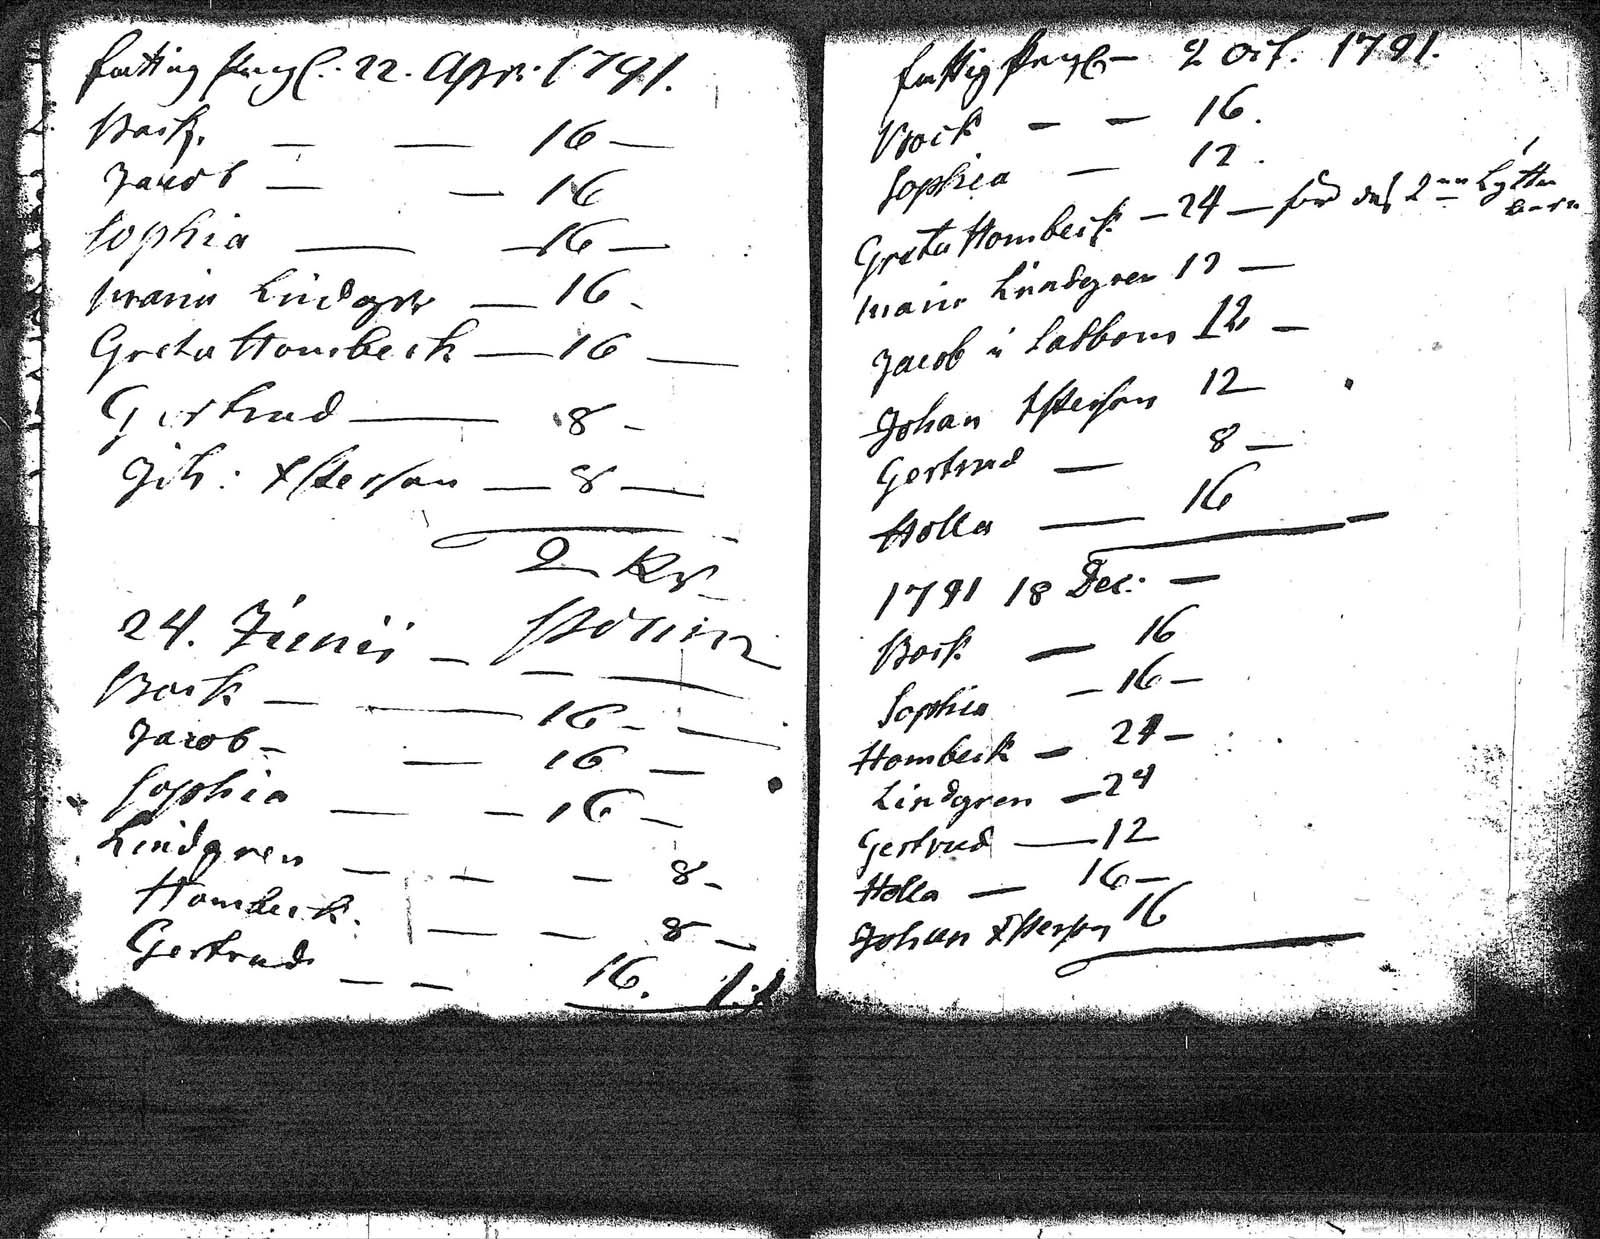 fattig Peng. 22. Apr. 1791.
Bock. — — 16 —
Jacob — — 16
Sophia — — 16 —
Maria Lindgr — 16 -
Greta Hombeck — 16 —
Gertrud — 8 -
Joh: Pettersson — 8 —
2 Rr
24. Junii —
Bock — — 16 - —
Jacob - — 16 —
Sophia — — 16 —
Lindgren — — — 8 -
Hombeck. — — 8 —
Gertrud — — 16. 1:1
fattig Peng — 2 Oct. 1791.
Bock — — 16.
Sophia — 12.
Greta Hombeck — 24 — för des 2 ne Lytta
barn
Maria Lindgren 12 —
Jacob i Ladbom 12 —
Johan Pettersson 12
Gertrud — 8 —
Holla — 16
1791 18 Dec: —
Bock — 16
Sophia — 16 —
Hombeck — 24 —
Lindgren — 24
Gertrud — 12
Holla — 16 —
Johan Pettersson 16